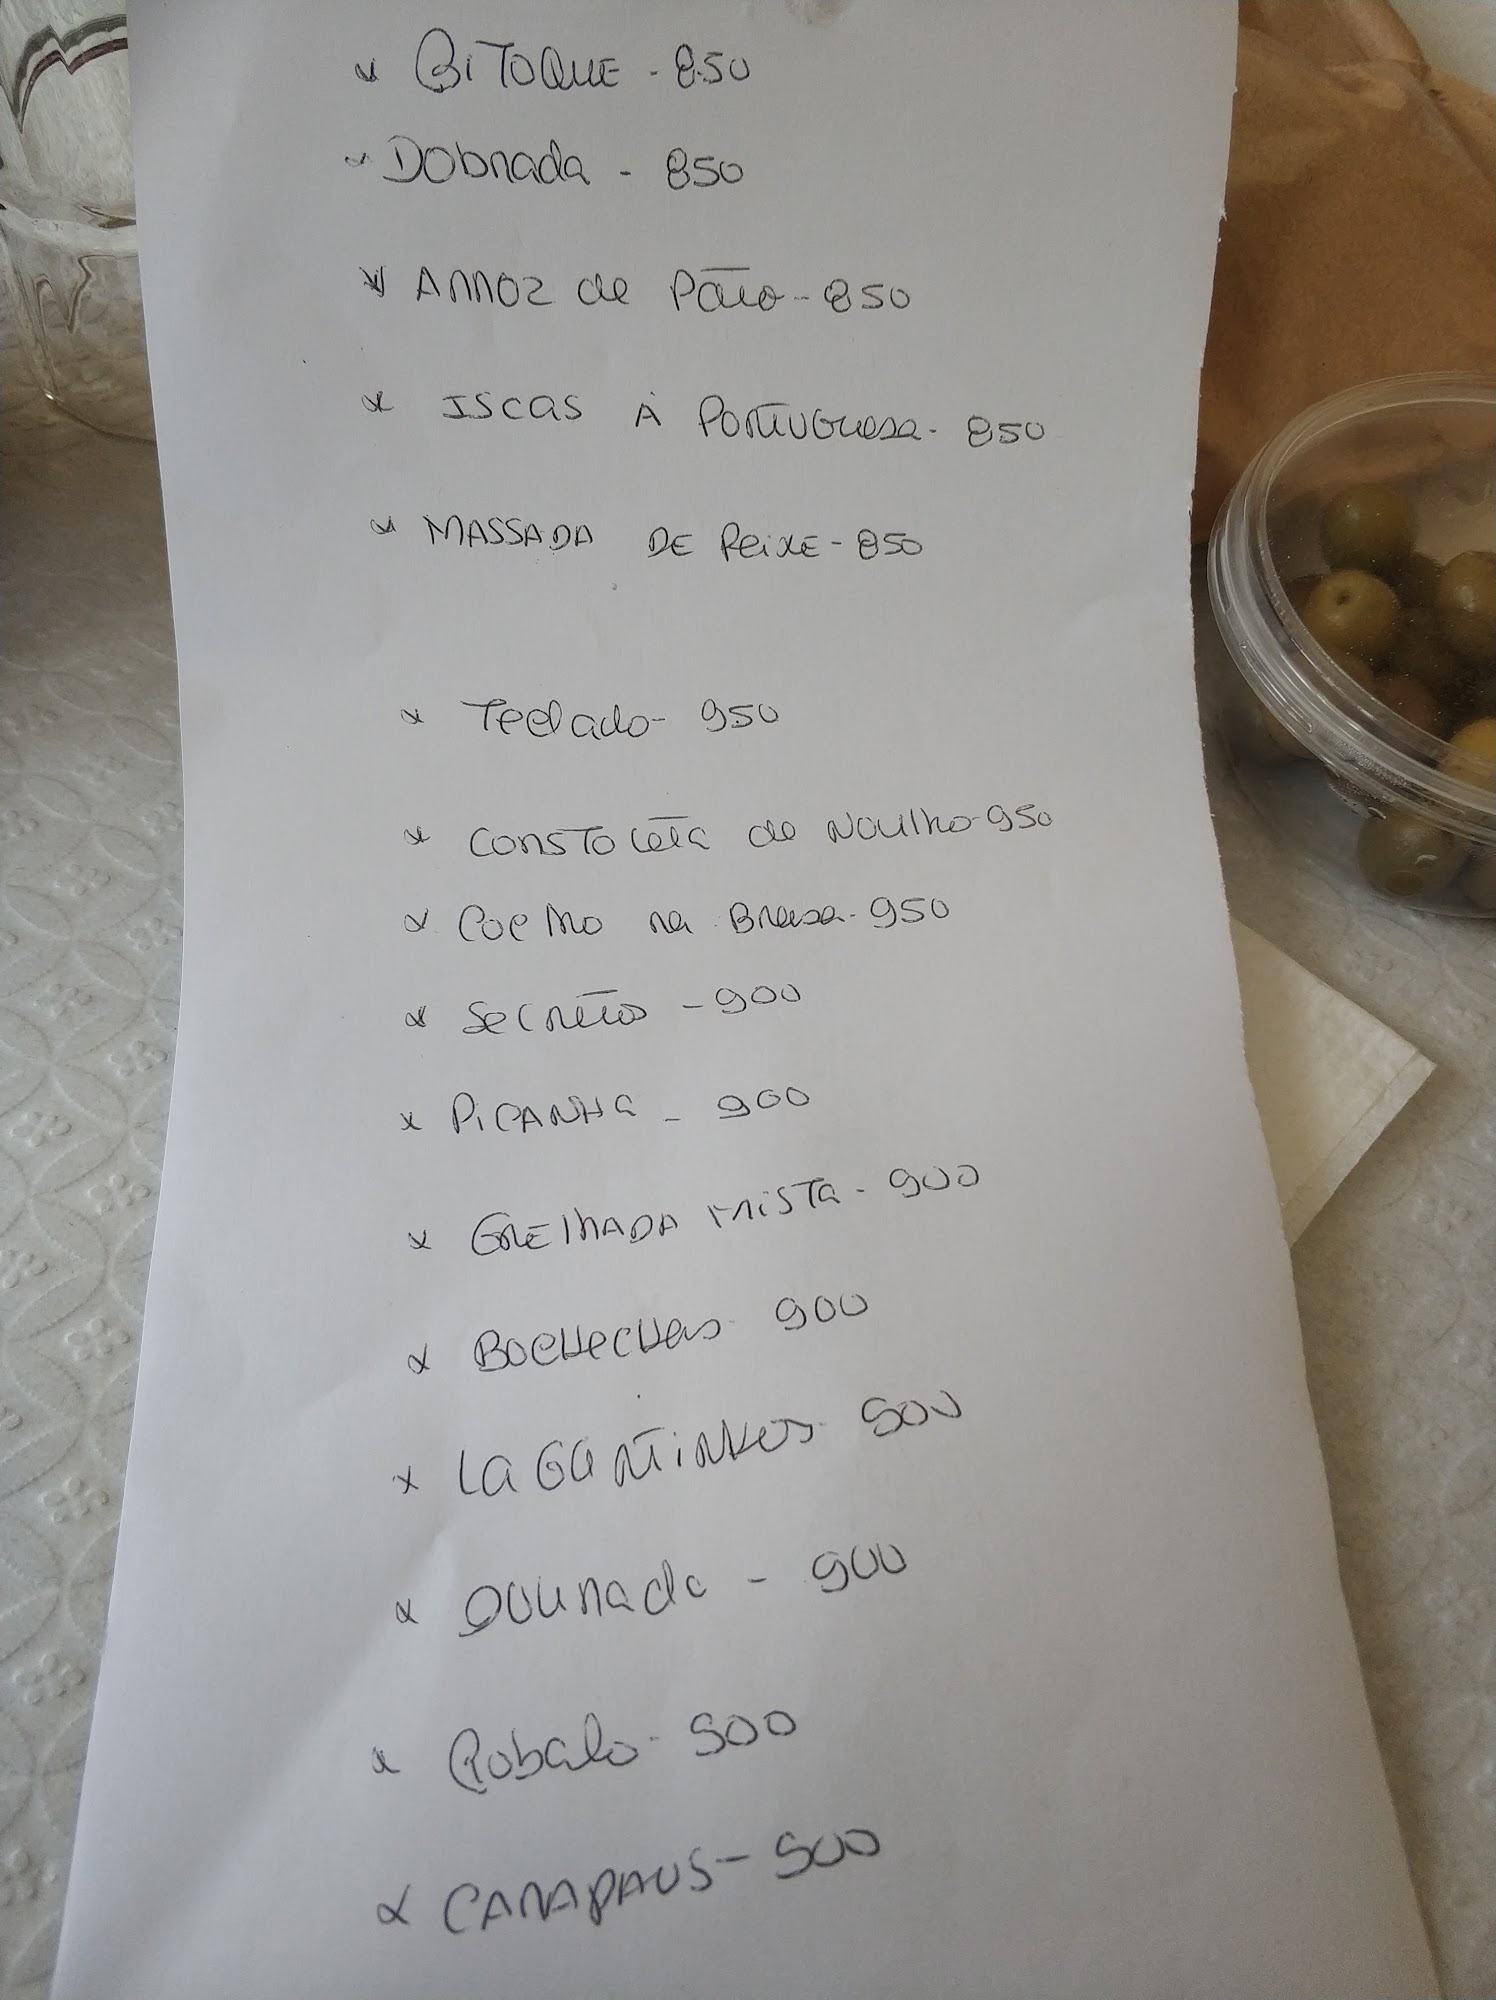 x BiTOQUE - 850
x DObrada - 850
x ARROZ de Pato - 850
x ISCAS À PORTUGuesa - 850
x MASSADA DE PeixE - 850
x Teclado - 950
x COnSToleta de Novilho - 950
x COelho na Brasa - 950
x Secretos - 900
x PiCANHa - 900
x GRElhADA MiSTa - 900
x BOCHECHas 900
x LaGaRTiNHOS 900
x DOurada - 900
x Robalo - 900
x CARAPAUS - 900